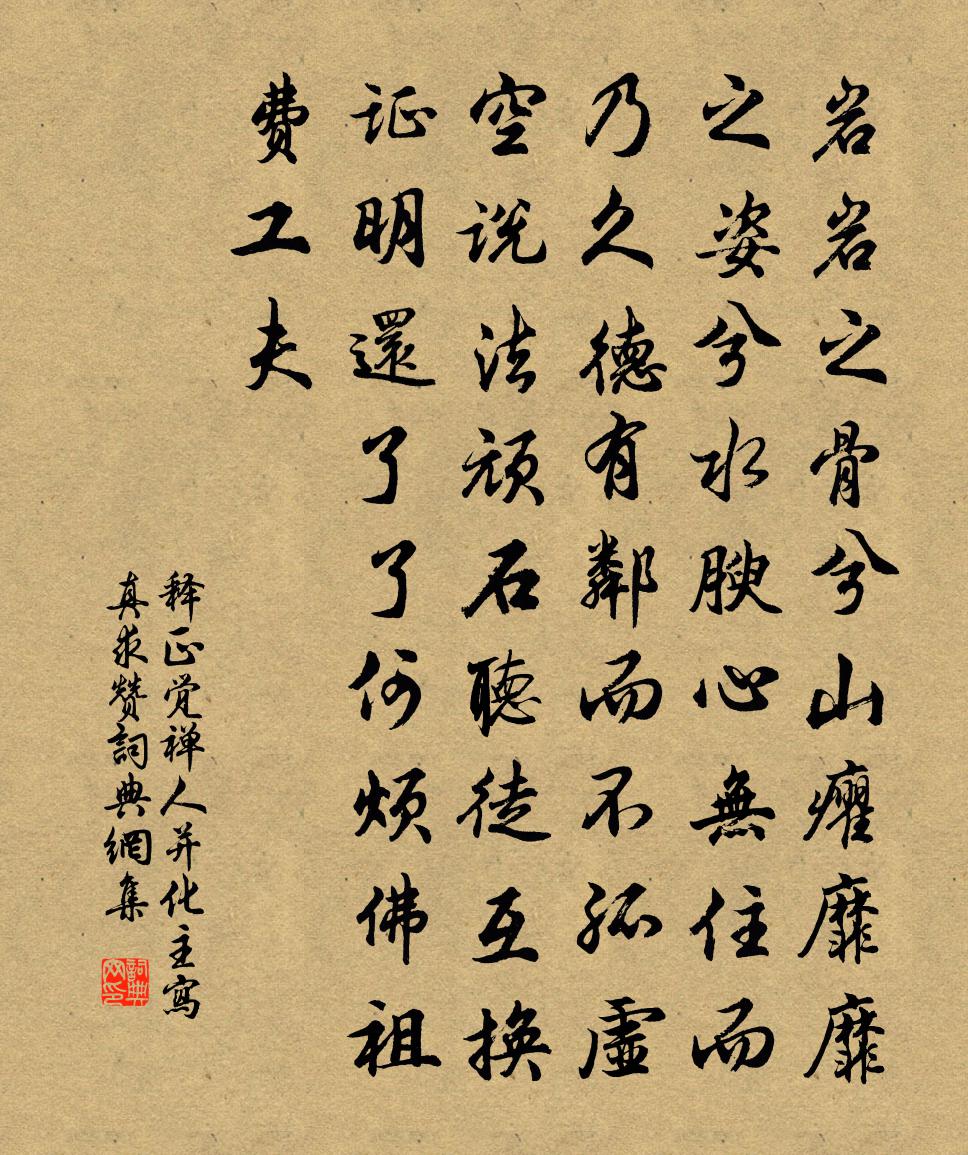 岩岩之骨兮山癯靡靡
之姿兮水腴心無住而
乃久德有鄰而不孤虛
空说法頑石聽徒互換
证明還了了何煩佛祖
費工夫
释正觉禅人并化主寫
真求赞詞典網集
詞典
网印